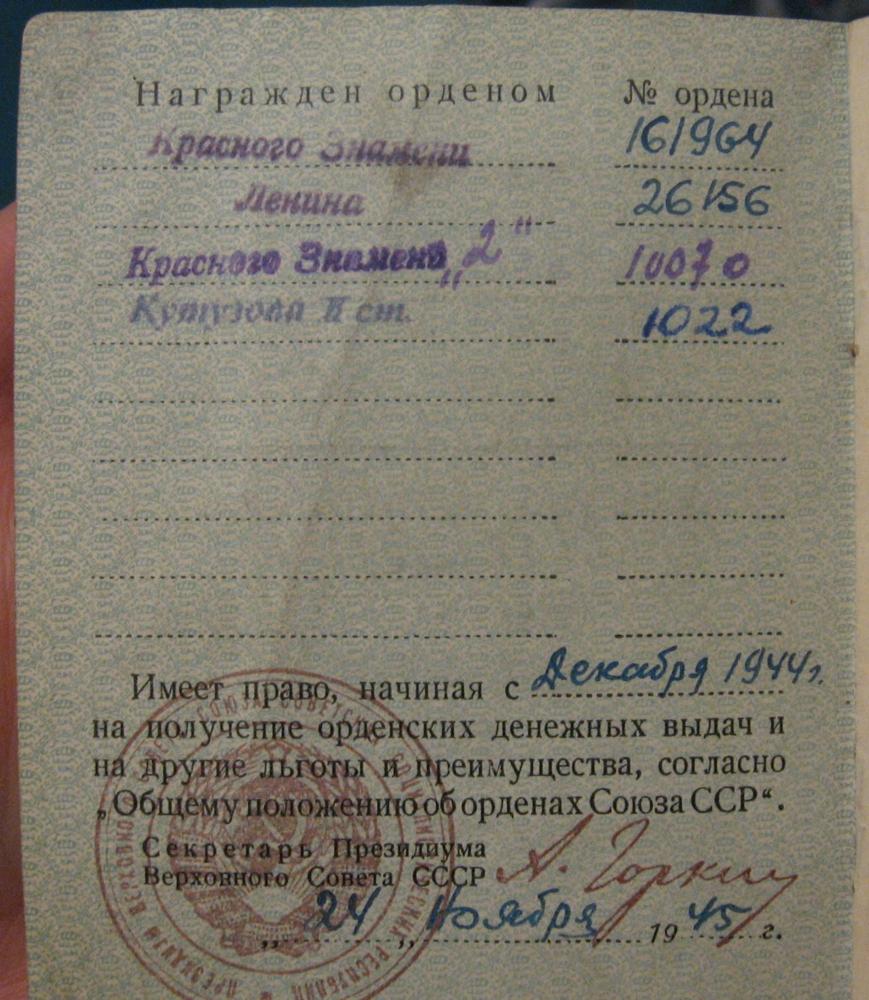 Награжден орденом № ордена
Красного Знамени 161964
Ленина 26156
Красного Знамени „2“ 10070
Кутузова II ст. 1022
Имеет право, начиная с Декабря 1944 г.
на получение орденских денежных выдач и
на другие льготы и преимущества, согласно
„Общему положению об орденах Союза ССР“.
Секретарь Президиума
Верховного Совета СССР А. Горкин
„24„ Ноября 1945 г.